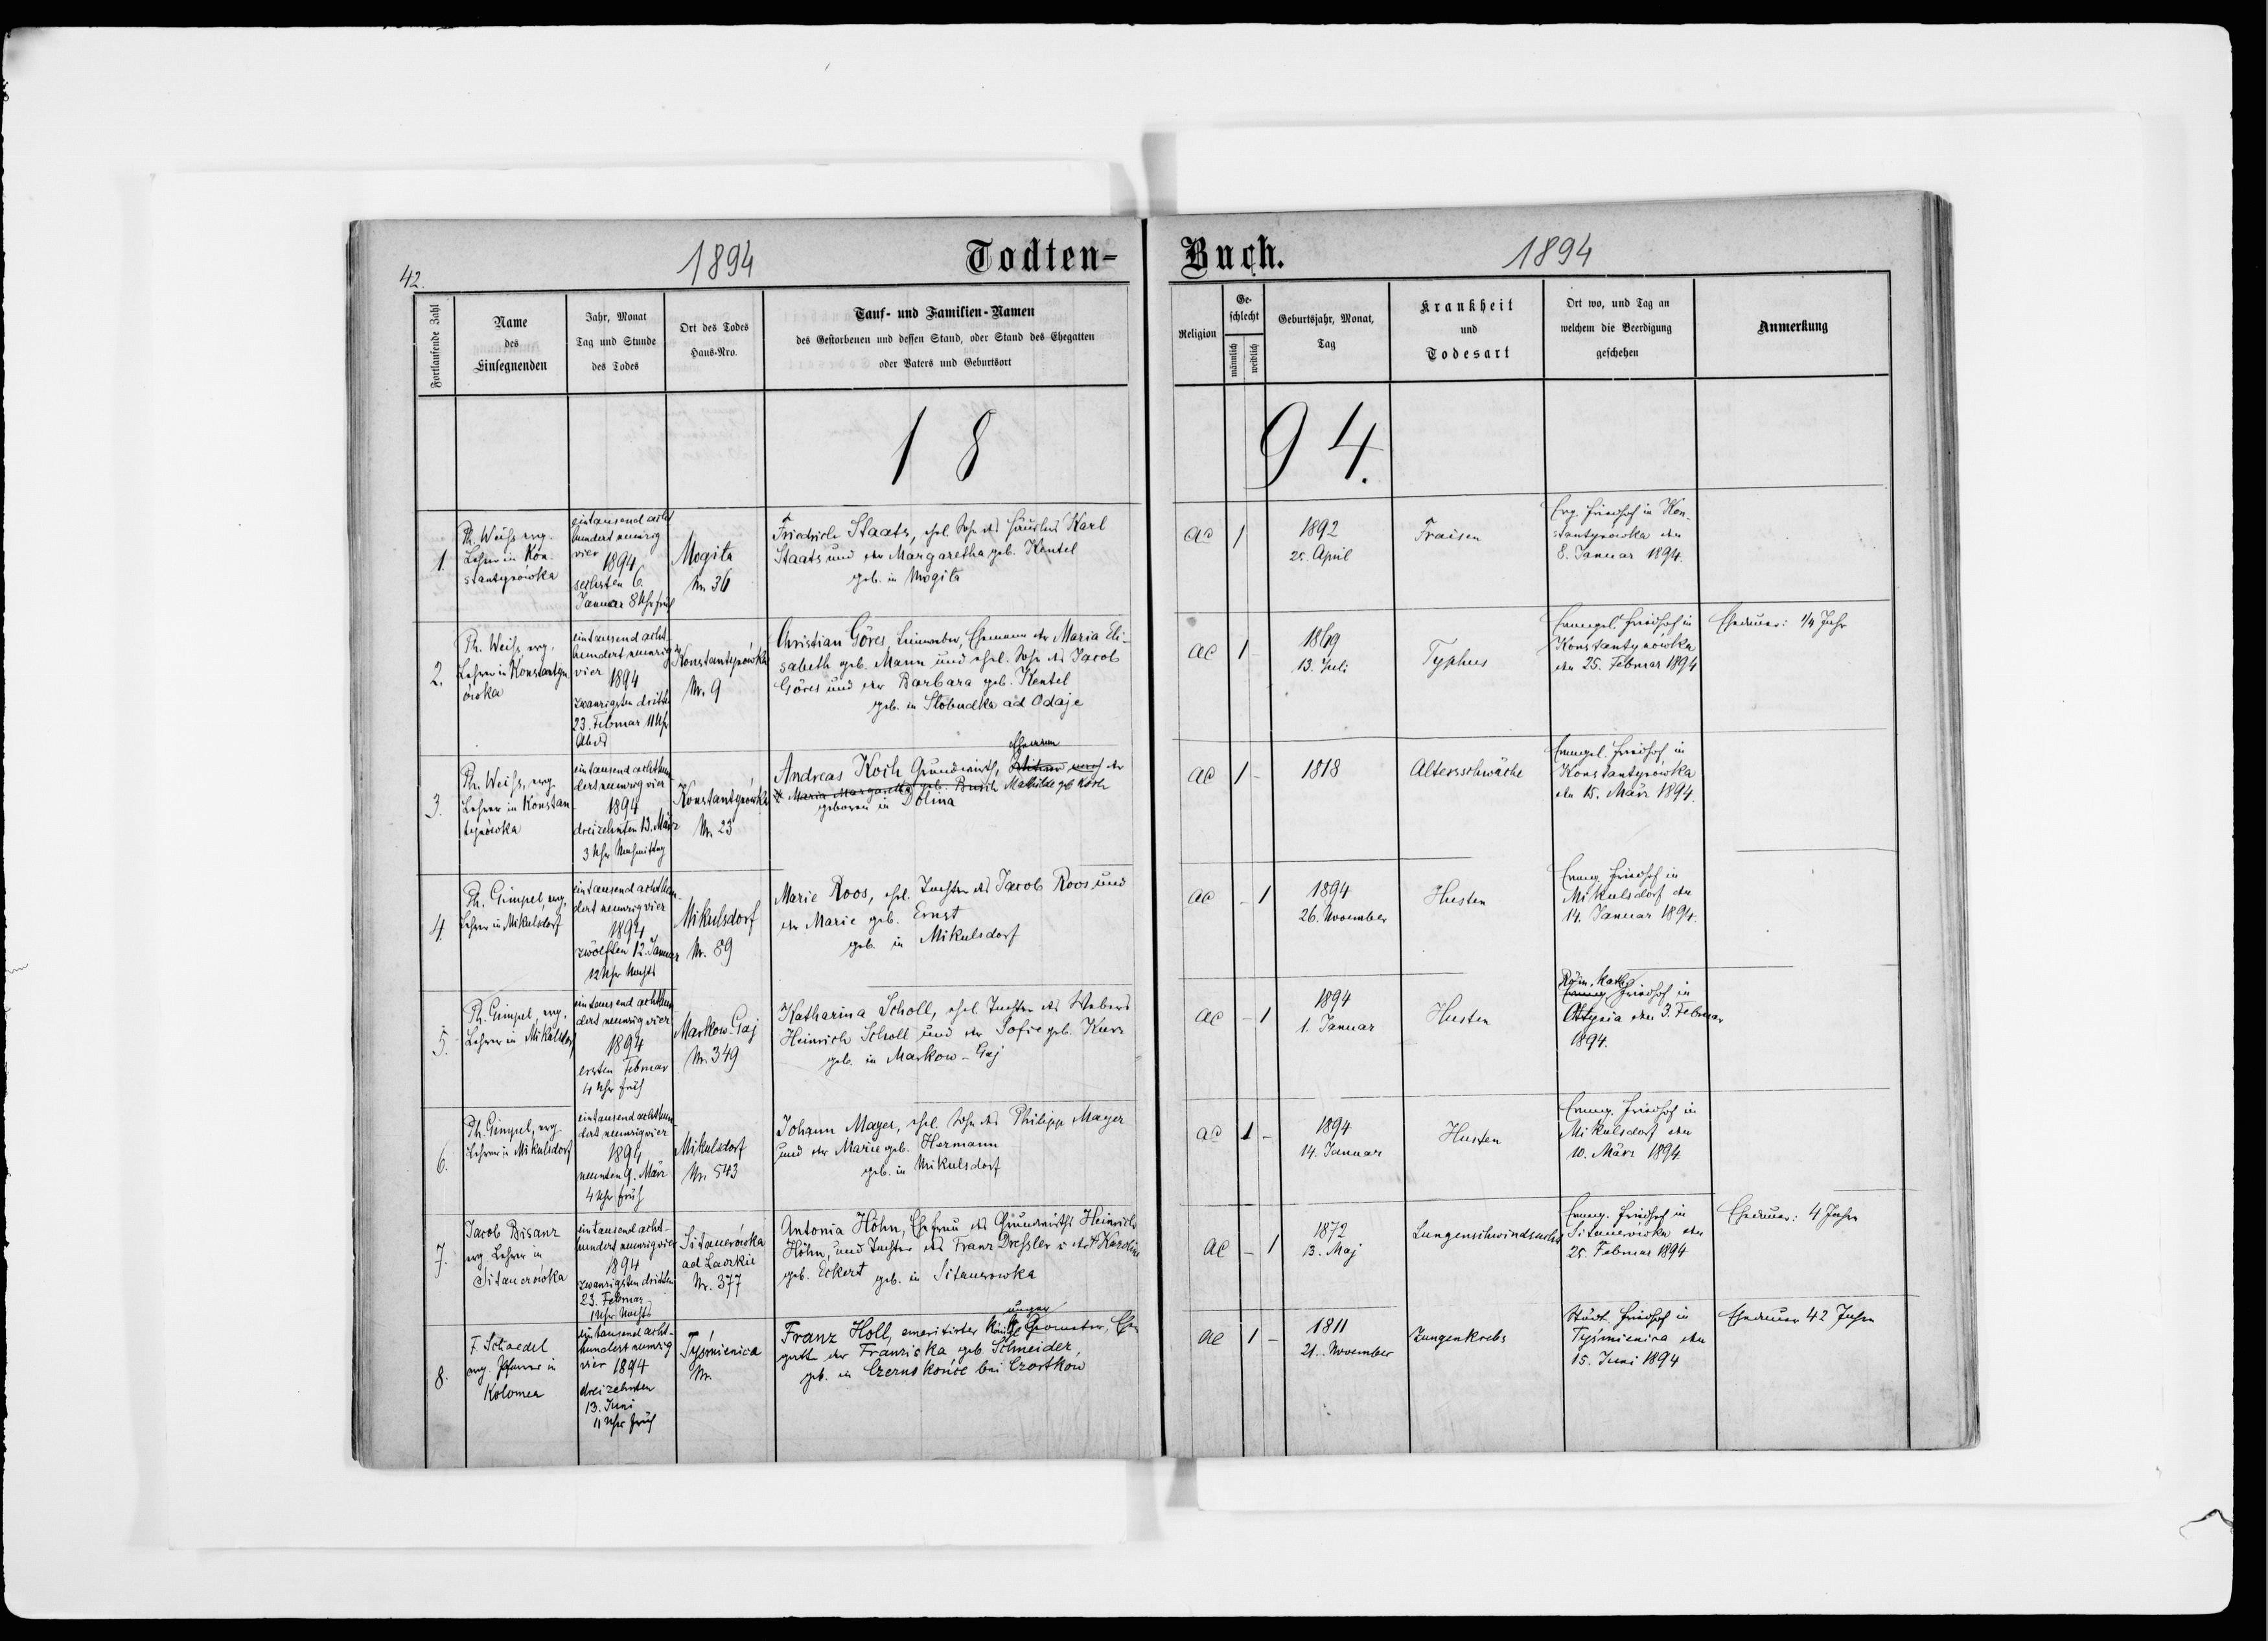 42.
1894
Todten-
Buch.
1894
Fortlaufende Zahl
Name
des
Einsegnenden
Jahr, Monat
Tag und Stunde
des Todes
Ort des Todes
Haus-Nro.
Tauf- und Familien-Namen
des Gestorbenen und dessen Stand, oder Stand des Ehegatten
oder Vaters und Geburtsort
Religion
Ge-
schlecht
männlich
weiblich
Geburtsjahr, Monat,
Tag
Krankheit
und
Todesart
Ort wo, und Tag an
welchem die Beerdigung
geschehen
Anmerkung
18
94.
1.
Ph. Weiss evg.
Lehrer in Kon-
stantynówka
eintausend acht
hundert neunzig
vier
1894
sechsten 6.
Januar 8 Uhr früh
Mogiła
Nr. 36
Friedrich Staats, ehel. Sohn des Häuslers Karl
Staats und der Margaretha geb. Kentel
geb. in Mogiła
AC
1
1892
25. April
Fraisen
Evg. Friedhof in Kon-
stantynówka den
8. Januar 1894.
2.
Ph. Weiss evg.
Lehrer in Konstantyn
ówka
eintausend acht-
hundert neunzig
vier
1894
zwanzigsten dritten
23. Februar 11 Uhr
Abends
Konstantynówka
Nr. 9
Christian Göres, Leinweber, Ehemann der Maria Eli-
sabeth geb. Mann und ehel. Sohn des Jacob
Göres und der Barbara geb. Kentel
geb. in Slobudka ad Odaje
AC
1 -
1869
13. Juli
Typhus
Evangel. Friedhof in
Konstantynówka
den 25. Februar 1894
Ehedauer: 1/4 Jahr
3.
Ph. Weiss, evg.
Lehrer in Konstan
tynówka
eintausend achthun
dert neunzig vier
1894
dreizehnten 13. März
3 Uhr Nachmittag
Konstantynówka
Nr. 23
Ehemann
Andreas Koch Grundwirth, Witwer nach der
Maria Margaretha geb. Busch Mathilde geb Koch
geboren in Dolina
AC
1 -
1818
Altersschwäche
Evangel. Friedhof in
Konstantynówka
den 15. März 1894.
4.
Ph. Gimpel, evg.
Lehrer in Mikulsdorf
eintausend achthun
dert neunzig vier
1894
zwölften 12. Januar
12 Uhr Nachts
Mikulsdorf
Nr. 89
Marie Roos, ehel. Tochter des Jacob Roos und
der Marie geb. Ernst
geb. in Mikulsdorf
AC
- 1
1894
26. November
Husten
Evang. Friedhof in
Mikulsdorf den
14. Januar 1894.
5.
Ph. Gimpel, evg.
Lehrer in Mikulsdorf
eintausend achthun
dert neunzig vier
1894
ersten Februar
4 Uhr früh
Markow-Gaj
Nr. 349
Katharina Scholl, ehel. Tochter des Webers
Heinrich Scholl und der Sofie geb. Kurz
geb. in Markow-Gaj
AC
- 1
1894
1. Januar
Husten
Röm. kath.
Evang. Friedhof in
Ottynia den 3. Februar
1894.
6.
Ph. Gimpel, evg.
Lehrer in Mikulsdorf
eintausend achthun
dert neunzig vier
1894
neunten 9. März
4 Uhr früh
Mikulsdorf
Nr. 543
Johann Mayer, ehel. Sohn des Philipp Mayer
und der Marie geb. Hermann
geb. in Mikulsdorf
AC
1 -
1894
14. Januar
Husten
Evang. Friedhof in
Mikulsdorf den
10. März 1894.
7.
Jacob Bisanz
evg. Lehrer in
Sitauerówka
eintausend acht-
hundert neunzig vier
1894
zwanzigsten dritten
23. Februar
1 Uhr Nachts
Sitauerówka
ad Ławrkie
Nr. 377
Antonia Höhn, Ehefrau des Grundwirths Heinrich
Höhn, und Tochter des Franz Dressler u. der Karoline
geb. Eckert geb. in Sitauerowka
AC
- 1
1872
13. Maj
Lungenschwindsucht
Evang. Friedhof in
Sitauerówka den
25. Februar 1894
Ehedauer: 4 Jahre
8.
F. Schaedel
evg Pfarrer in
Kolomea
eintausend acht-
hundert neunzig
vier 1894
dreizehnten
13. Juni
11 Uhr früh
Tyśmienica
Nr.
Franz Holl, emeritirter Geometer, Ehe
gatte der Franziska geb. Schneider,
geb. in Czernokońce bei Czortków
AC
1 -
1811
21. November
Zungenkrebs
Städt. Friedhof in
Tyśmienica den
15. Juni 1894
Ehedauer 42 Jahre